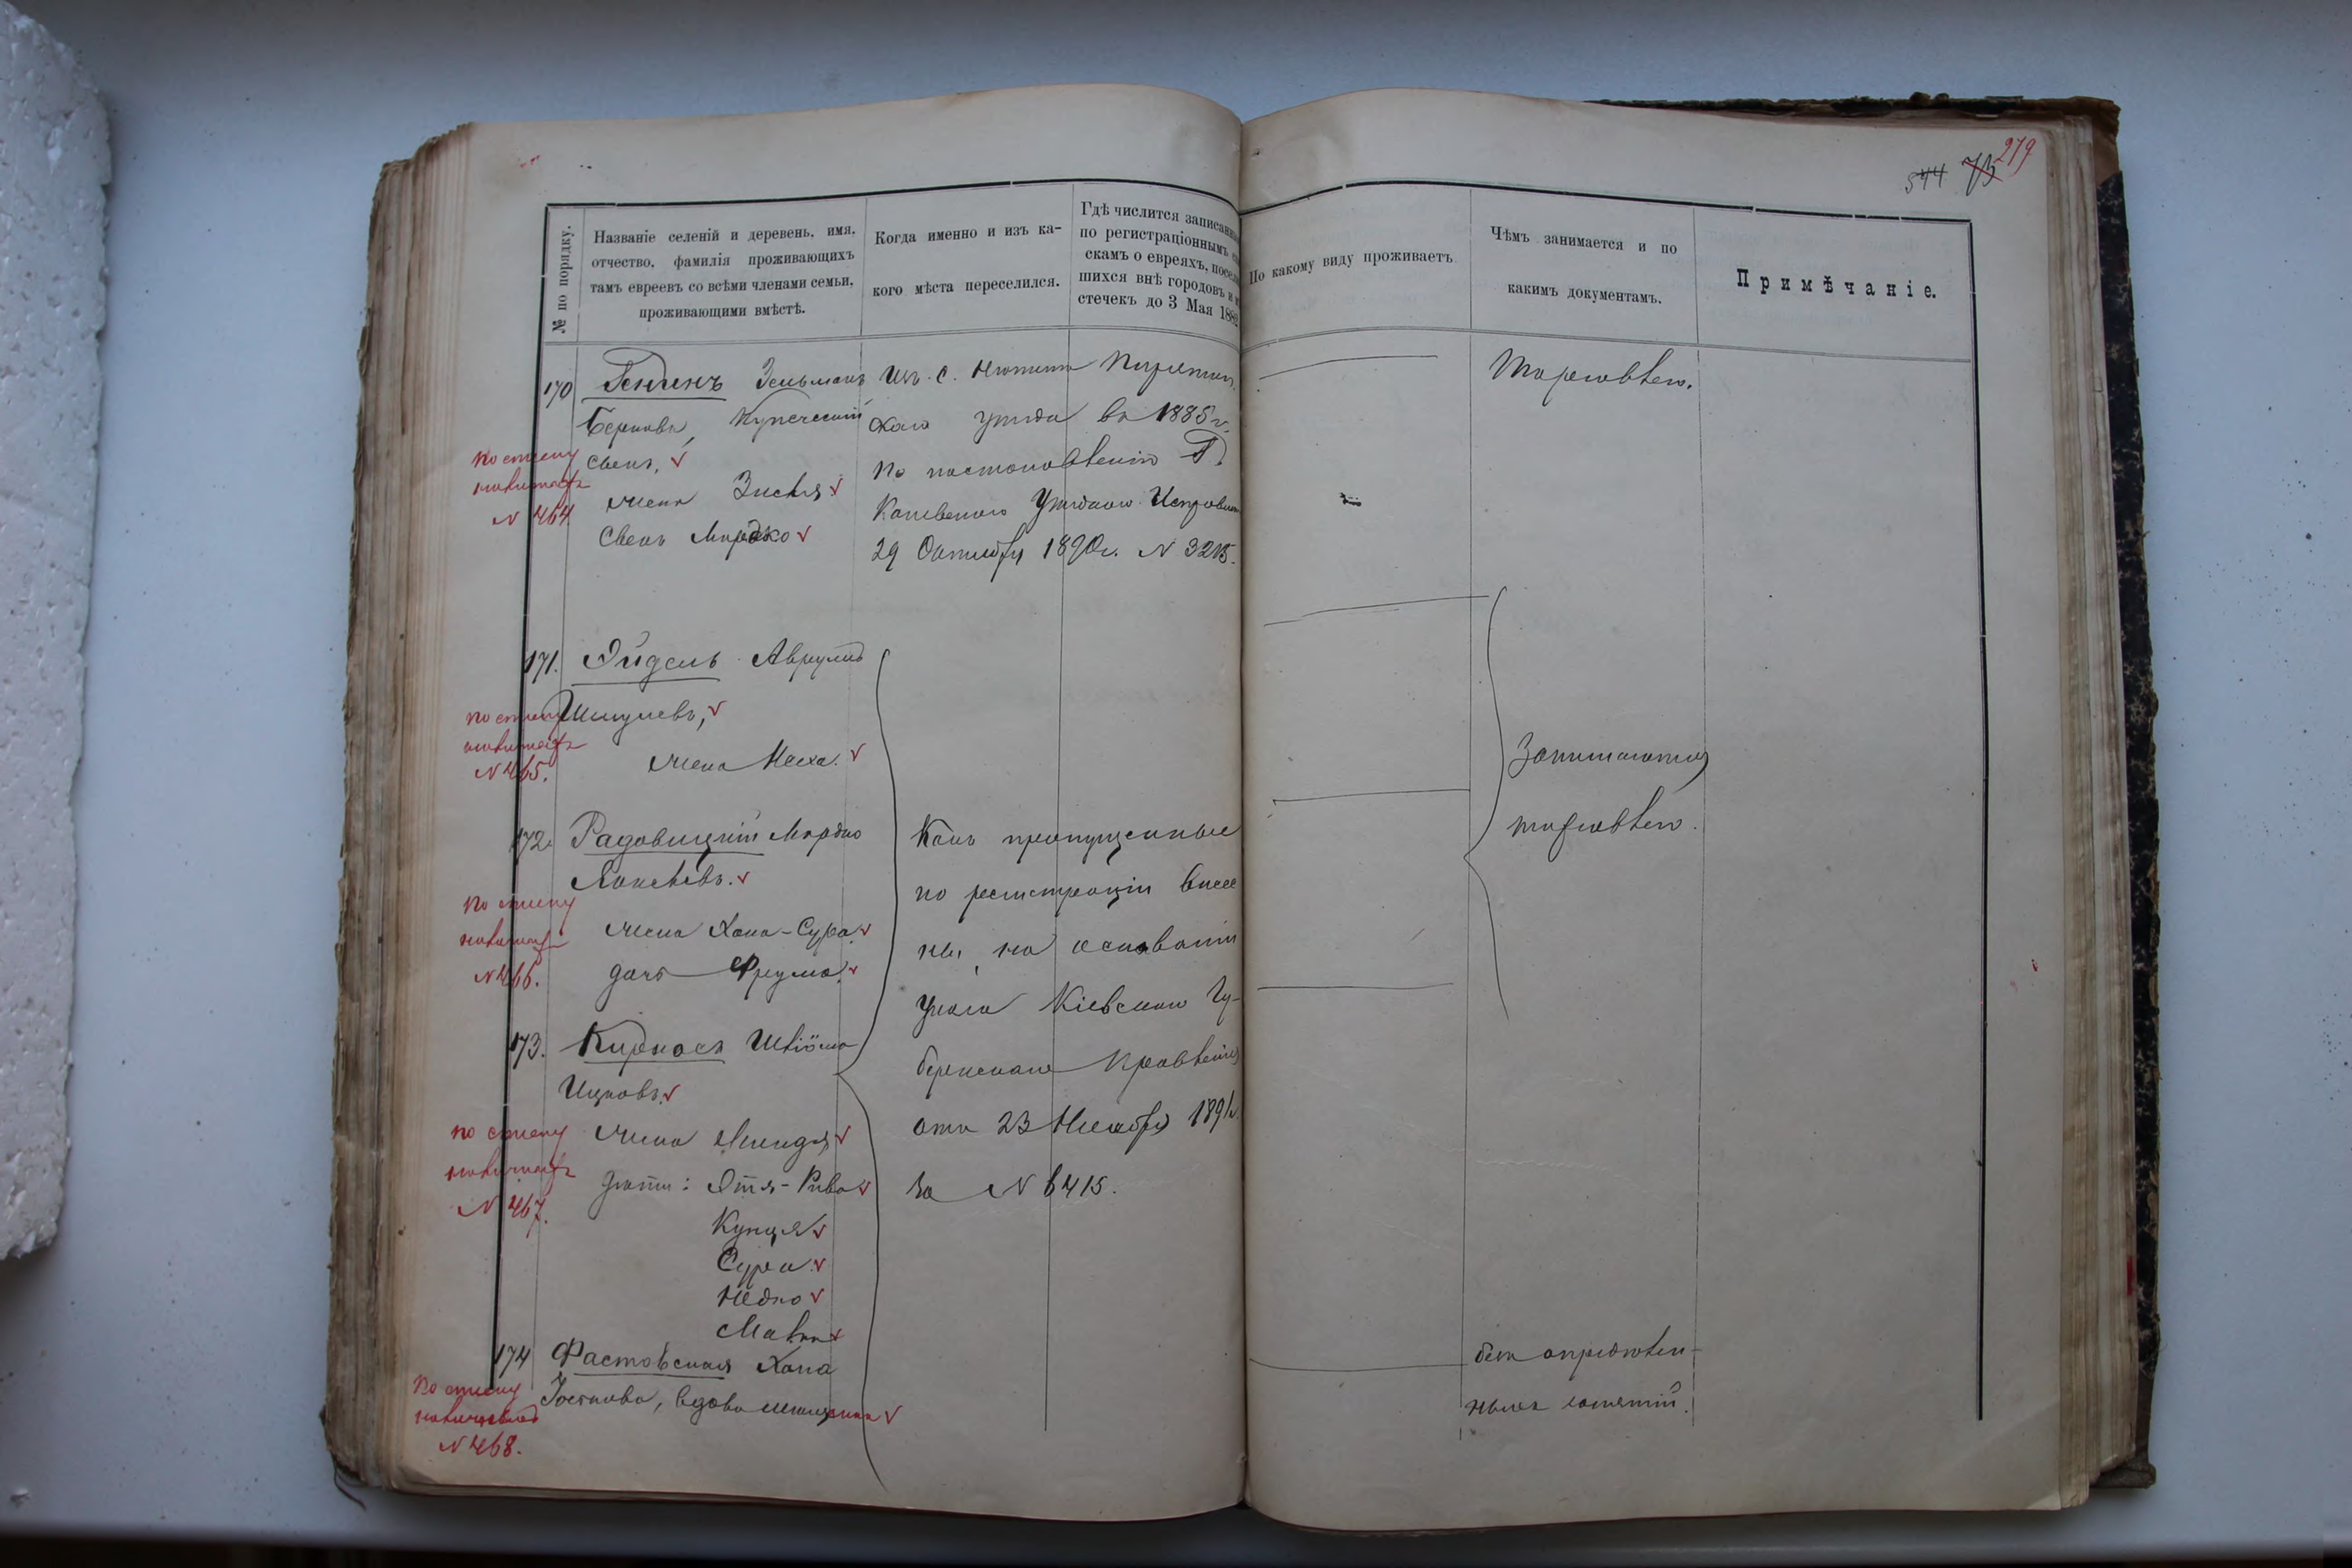 544 73 279
№ по порядку.
Названіе селеній и деревень, имя,
отчество, фамилія проживающихъ
тамъ евреевъ со всѣми членами семьи,
проживающими вмѣстѣ.
Когда именно и изъ ка-
кого мѣста переселился.
Гдѣ числится записанн
по регистраціоннымъ с
скамъ о евреяхъ, посел
шихся внѣ городовъ и м
стечекъ до 3 Мая 1882
По какому виду проживаетъ
Чѣмъ занимается и по
какимъ документамъ.
Примѣчаніе.
170 Гендинъ Зельманъ
Берковъ, Купеческій
сынъ,
жена Зисля
Сынъ Мордко
По списку
№ 464.
Изъ с. Пирятин
скаго уѣзда въ 1885 г.
По постановленію Г.
Каневскаго Уѣзднаго Исправни
29 Октября 1890 г. №
Торговлею.
171. Эйдель Аврумъ
Шмулевъ,
жена Неха.
По списку
№ 465.
172. Радовицкій Мордко
Янкелевъ.
жена Хана-Сура
дочь Фрума.
По списку
№ 466.
173. Кирносъ Шлiома
Ицковъ.
жена
дѣти: Этя-Рива
Купця
Сура
Недко
Малка
по списку
№ 467.
Какъ пропущенные
по регистраціи внесе
ны, на основаніи
Указа Кіевскаго Гу-
бернскаго Правленія
отъ 23 Ноября 1891 г.
за № 6415.
Занимаются
торговлею.
174 Фастовская Хана
Госькова, вдова мѣщанка
По списку
№ 468.
безъ опредѣлен-
ныхъ занятій.